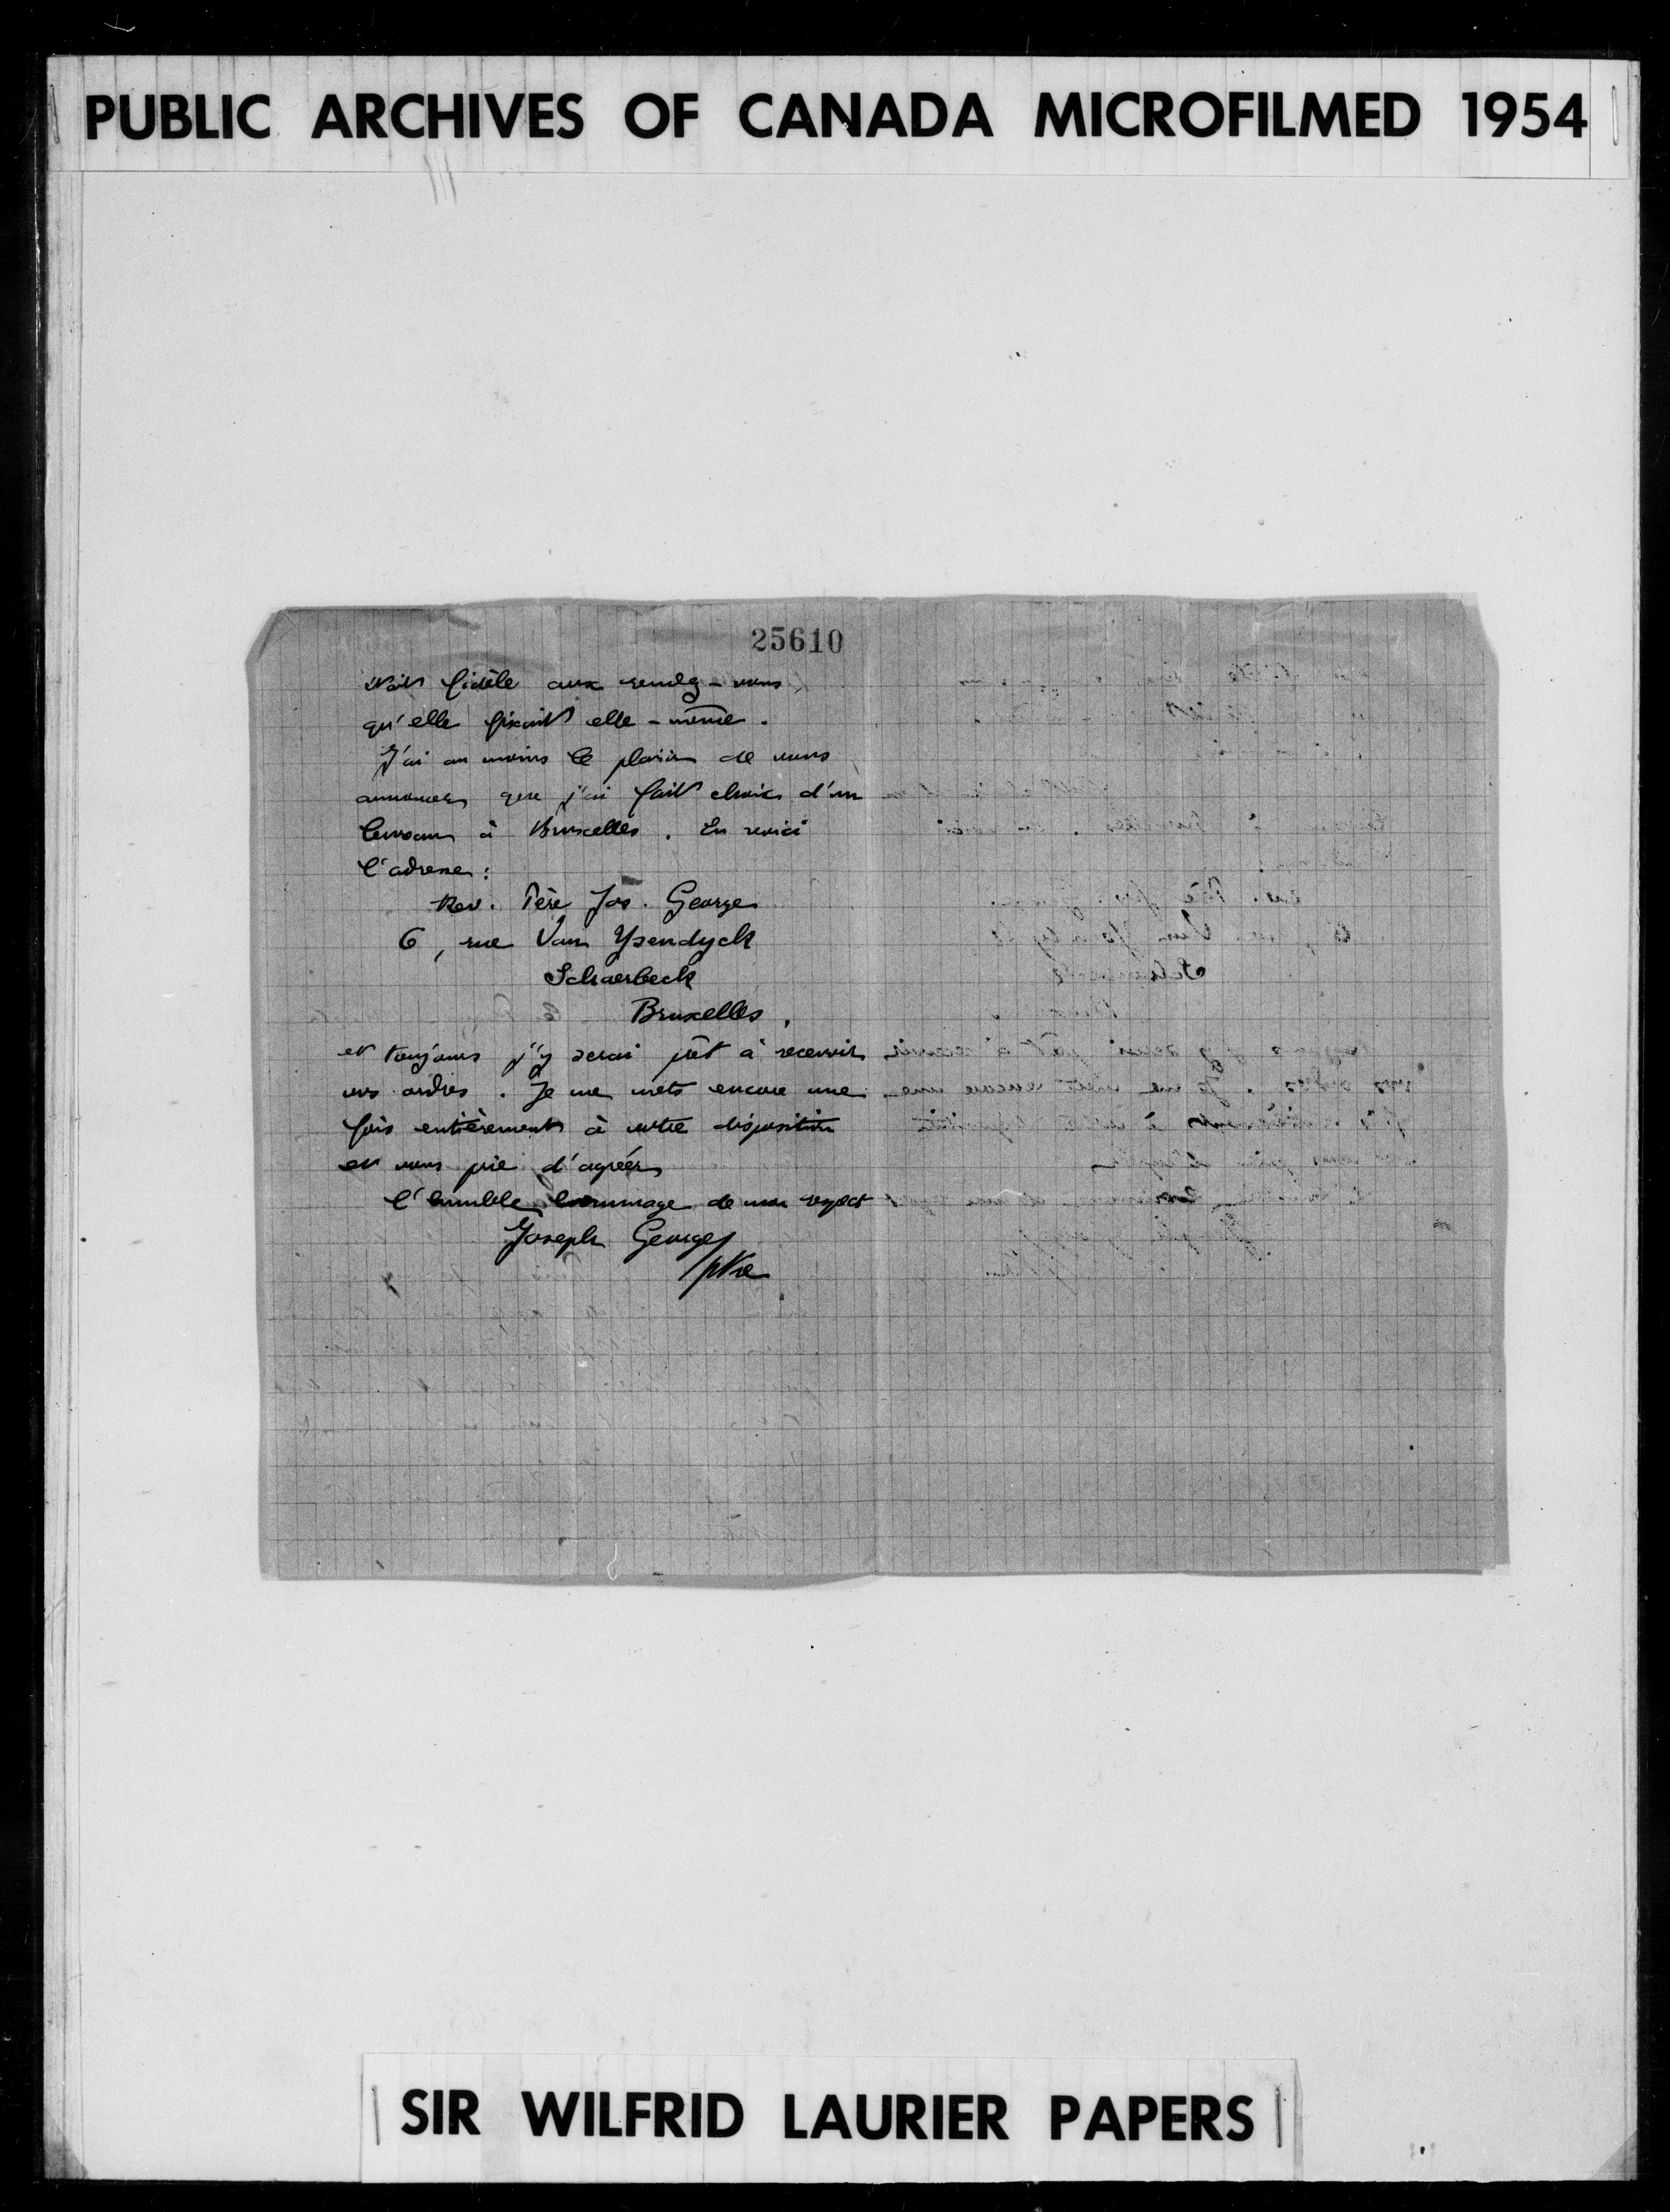 PUBLIC ARCHIVES OF CANADA MICROFILMED 1954
25610
fidèle aux rendez-vous
qu'elle fixait elle-même.
J'ai au moins le plaisir de vous
annoncer que j'ai fait choix d'un
à Bruxelles. En voici
l'adresse:
Rev. Père Jos. George
6, rue Van Ysendyck
Schaerbeck
Bruxelles.
et toujours j'y serai prêt à recevoir
vos ordres. Je me mets encore une
fois entièrement à votre disposition
et vous prie d'agréer
l'humble hommage de mon respect
Joseph George
ptre
SIR WILFRID LAURIER PAPERS